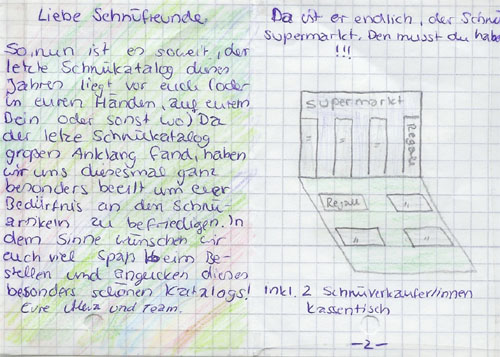 Liebe Schnüfreunde
So, nun ist es soweit, der
letzte Schnükatalog dieses
Jahres liegt vor euch (oder
in euren Händen, auf eurem
Bein oder sonst wo) Da
der letze Schnükatalog
großen Anklang fand, haben
wir uns diesesmal ganz
besonders beeilt um euer
Bedürfnis an den Schnü-
artikeln zu befriedigen. In
dem Sinne wünschen wir
euch viel Spaß beim Be-
stellen und angucken dieses
besonders schönen Katalogs!
Eure und Team.
Da ist er endlich, der Schnü
supermarkt. Den musst du habe
!!!
Supermarkt
Regal
Regal
"
"
"
Inkl. 2 Schnüverkäufer/innen
Kassentisch
-2-